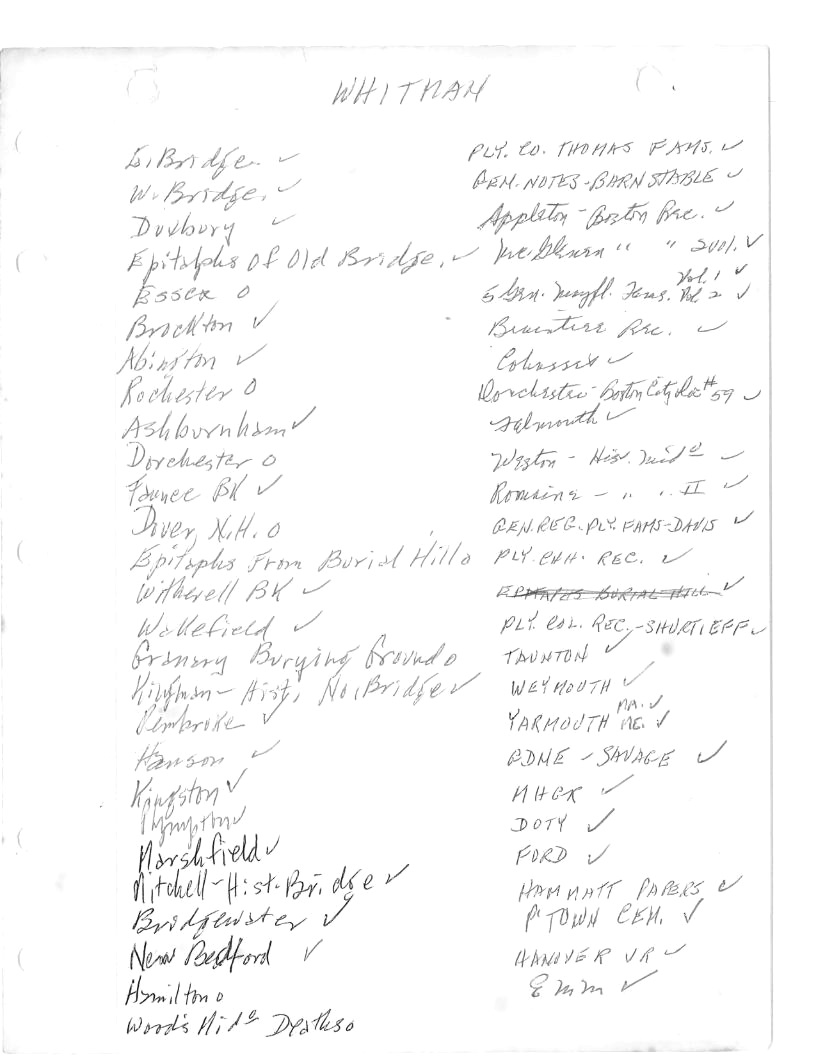 WHITMAN
E. Bridge. ✓
W. Bridge. ✓
Duxbury ✓
Epitalphs Of Old Bridge. ✓
Essex o
Brockton ✓
Abington ✓
Rochester o
Ashburnham ✓
Dorchester o
Faunce BK ✓
Dover, N.H. o
Epitaphs From Burial Hill o
Witherell BK ✓
Wakefield ✓
Granary Burying Ground o
Kingman - Hist. No. Bridge ✓
Pembroke ✓
Hanson ✓
Kingston ✓
Plympton ✓
Marshfield ✓
Mitchell - Hist. Bridge ✓
Bridgewater ✓
New Bedford ✓
Hamilton o
Wood's Mido Deaths o
PLY. CO. THOMAS FAMS. ✓
GEN. NOTES - BARNSTABLE ✓
Appleton - Boston Rec. ✓
McGlenen " " 2 vol. ✓
5 Gen. Mayfl. Fams. Vol. 1 ✓
Vol. 2 ✓
Braintree Rec. ✓
Cohasset ✓
Dorchester - Boston City Doc # 59 ✓
Falmouth ✓
Weston - His. Mido ✓
Romaine - " " II ✓
GEN. REG. PLY. FAMS - DAVIS ✓
PLY. CHH. REC. ✓
BURIAL HILL ✓
PLY. COL. REC. - SHURTLEFF ✓
TAUNTON ✓
WEYMOUTH ✓
YARMOUTH MA. ✓
ME. ✓
GDME - SAVAGE ✓
MHGR ✓
DOTY ✓
FORD ✓
HAMMATT PAPERS ✓
P'TOWN CEM. ✓
HANOVER VR ✓
Emm ✓